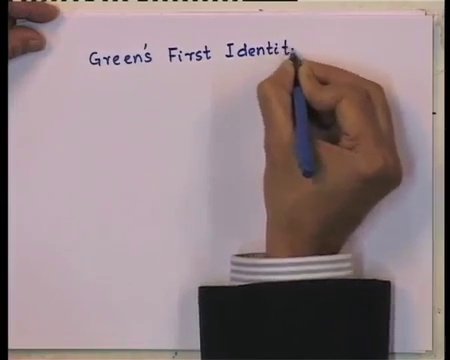 Green's First Identit